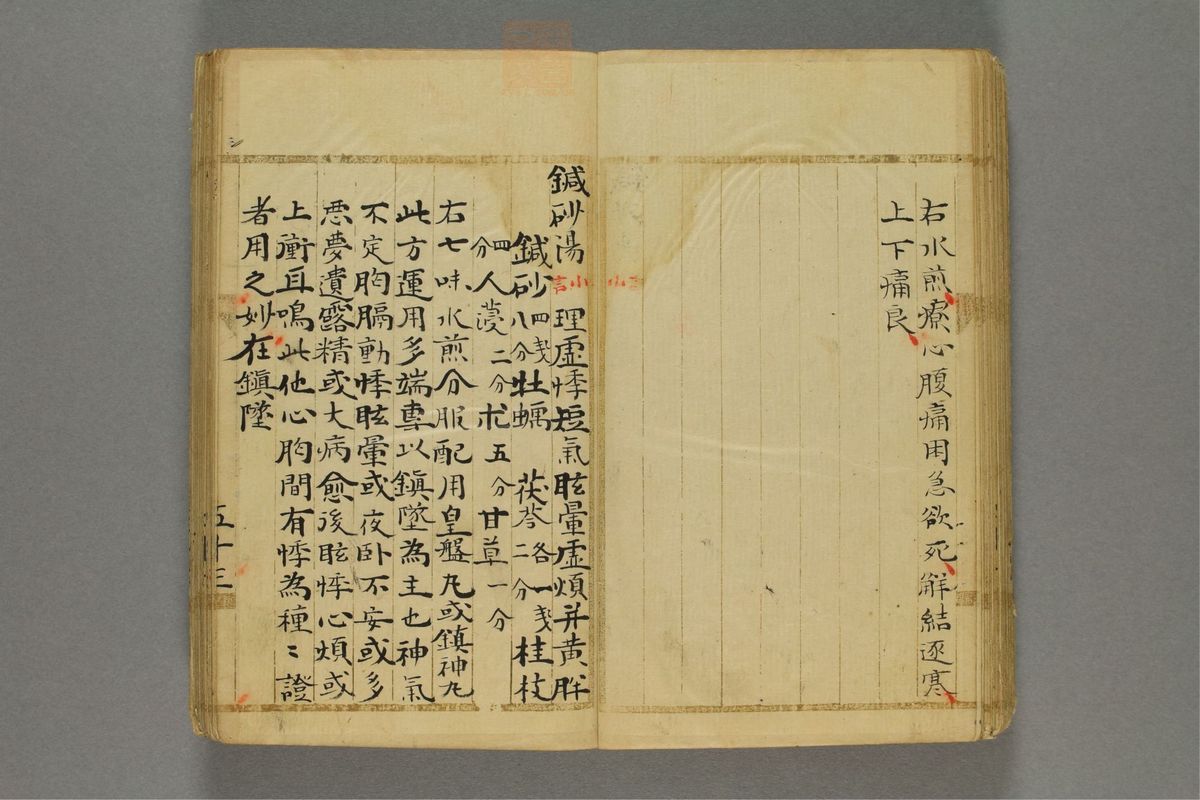 右水煎療心腹痛困急欲死解結逐寒
上下痛良
鍼砂湯 小言 理虛悸短氣眩暈虛煩并黄胖
鍼砂四戔八分 牡蠣 茯苓各一戔二分 桂枝
四分 人葠二分 朮五分 甘草一分
右七味水煎分服配用皇盤九或鎮神九
此方運用多端專以鎮墜為主也神氣
不定胸膈動悸眩暈或夜卧不安或多
悪夢遺露精或大病愈後眩悸心煩或
上衝耳鳴此他心胸間有悸為種〻證
者用之妙在鎮墜
五十三